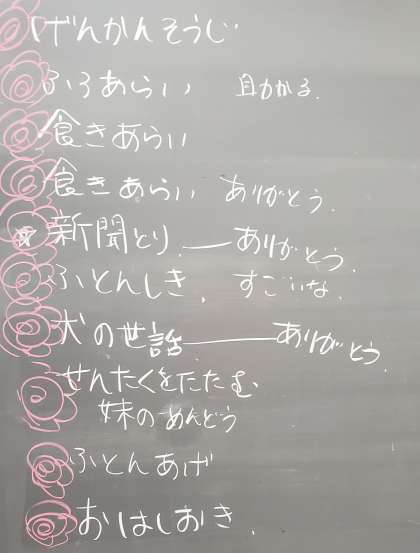 げんかんそうじ
ふろあらい 助かる.
食きあらい
食きあらい ありがとう.
新聞とり ― ありがとう.
ふとんしき. すごいな.
犬の世話 ― ありがとう.
せんたくをたたむ
妹のめんどう
ふとんあげ
おはしおき.